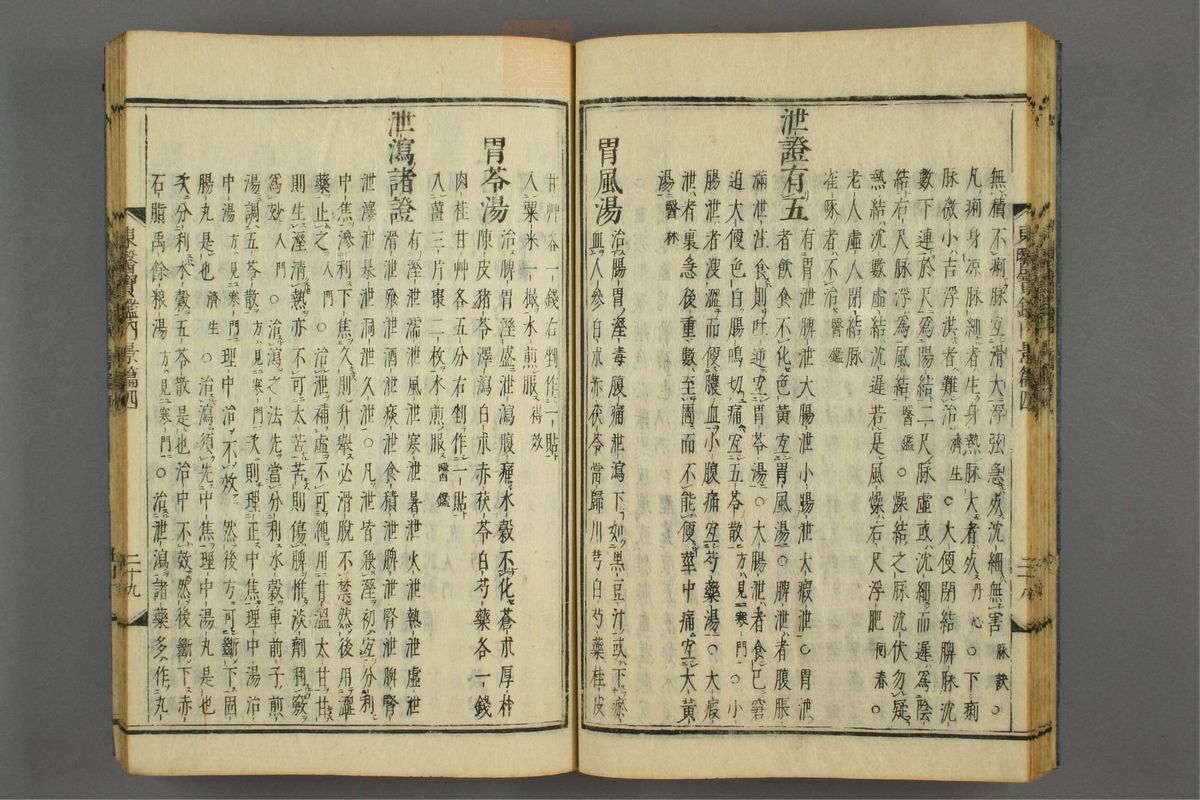 無積不痢脉宜滑大浮弦急死沈細無害脉訣○
凡痢身涼脉細者生身熱脉大者死丹心○下痢
脉微小吉浮洪者難治濟生○大便閉結脾脉沈
數下連於尺爲陽結二尺脉虛或沈細而遲爲陰
結右尺脉浮爲風結醫鑑○燥結之脉沈伏勿疑
熱結沈數虛結沈遲若是風燥右尺浮肥回春○
老人虛人閉結脉
雀啄者不治醫鑑
泄證有五
有胃泄脾泄大腸泄小腸泄大瘕泄○胃泄
者飮食不化色黃宜胃風湯○脾泄者腹脹
滿泄注食則吐逆宜胃苓湯○大腸泄者食已窘
迫大便色白腸鳴切痛宜五苓散方見寒門○小
腸泄者溲澀而便膿血小腹痛宜芍藥湯○大瘕
泄者裏急後重數至圊而不能便莖中痛宜大黃
湯醫林
胃風湯
治腸胃溼毒腹痛泄瀉下如黑豆汁或下瘀
血人參白朮赤茯苓當歸川芎白芍藥桂皮
甘艸各一錢右剉作一貼
入粟米一撮水煎服得效
胃苓湯
治脾胃溼盛泄瀉腹痛水穀不化蒼朮厚朴
陳皮猪苓澤瀉白朮赤茯苓白芍藥各一錢
肉桂甘艸各五分右剉作一貼
入薑三片棗二枚水煎服醫鑑
泄瀉諸證
有溼泄濡泄風泄寒泄暑泄火泄熱泄虛泄
滑泄飱泄酒泄痰泄食積泄脾泄腎泄脾腎
泄瀼泄暴泄洞泄久泄○凡泄皆兼溼初宜分利
中焦滲利下焦久則升擧必滑脫不禁然後用澀
藥止之入門○治泄補虛不可純用甘溫太甘
則生溼淸熱亦不可太苦苦則傷脾惟淡劑利竅
爲妙入門○治瀉之法先當分利水穀車前子煎
湯調五苓散方見寒門次則理正中焦理中湯治
中湯方見寒門理中治不效然後方可斷下固
腸丸是也濟生○治瀉須先中焦理中湯丸是也
次分利水穀五苓散是也治中不效然後斷下赤
石脂禹餘粮湯方見寒門○治泄瀉諸藥多作丸
東醫寶鑑內景篇四
東醫寶鑑內景篇四
二十九